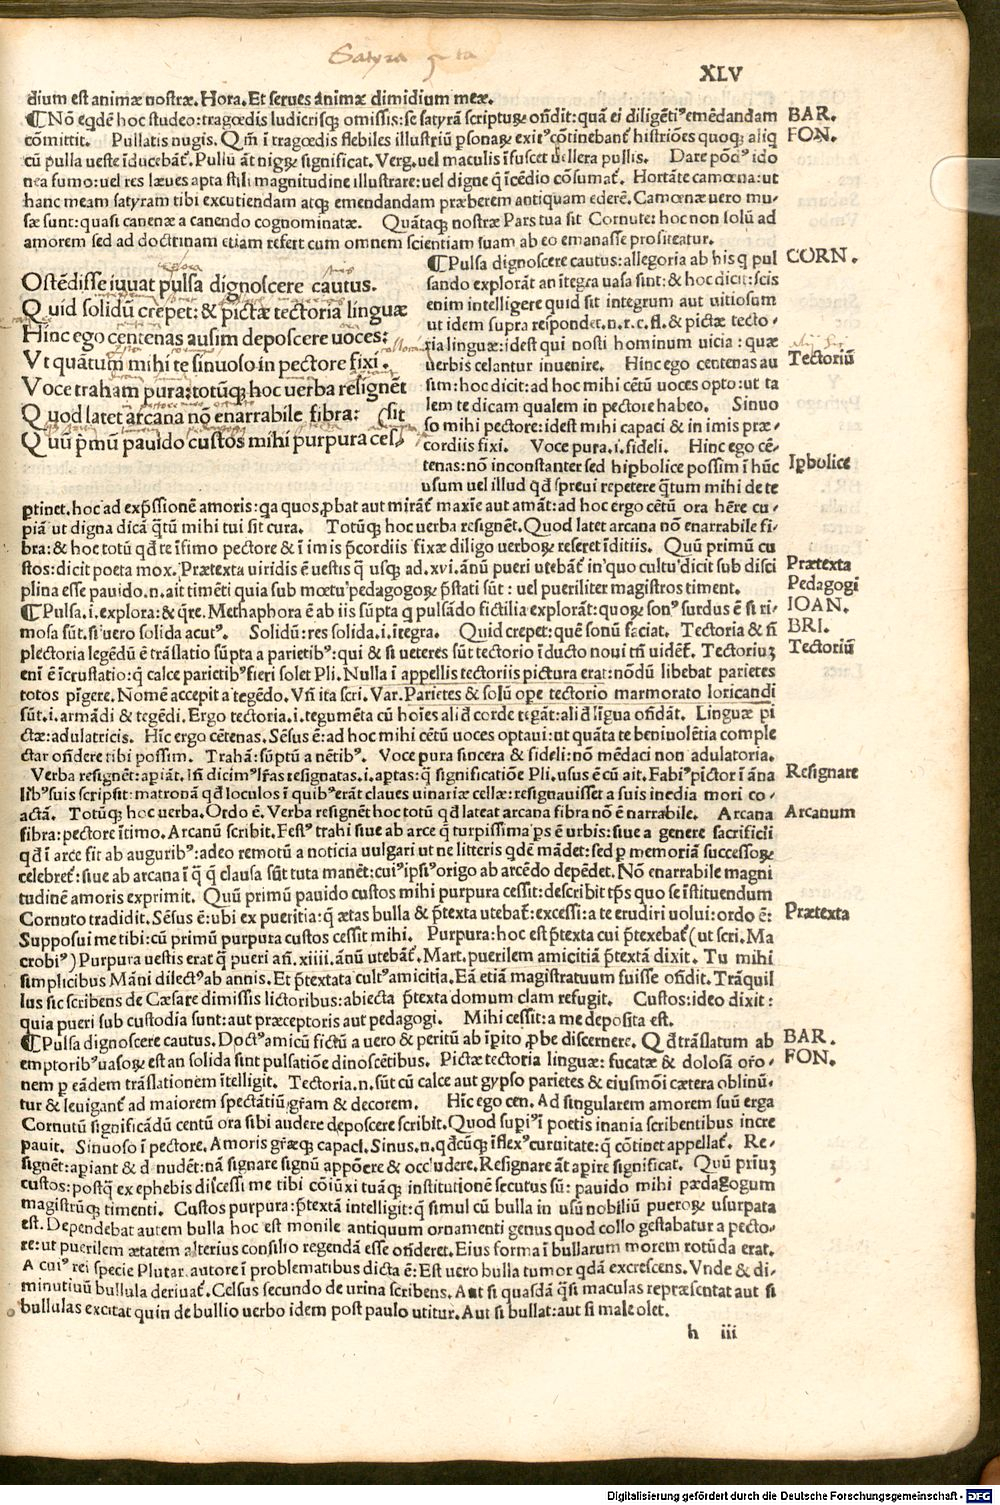 Satyra
XLV
dium est animæ nostræ. Hora. Et serues animæ dimidium meæ.
¶Nō eqdē hoc studeo: tragœdis ludicrisq; omissis: se satyrā scripturꝝ oñdit: quā ei diligētiꝰ emēdandam
cōmittit. Pullatis nugis. Qm̄ ī tragœdis flebiles illustriū ꝑsonaꝝ exitꝰ cōtinebant̄ histriōes quoq; aliq
cū pulla ueste īducebāt̄. Pullū āt nigꝝ significat. Verg. uel maculis īfuscet uellera pullis. Dare pōdꝰ ido
nea fumo: uel res læues apta stili magnitudine illustrare: uel digne q̄ īcēdio cōsumat̄. Hortāte camœna: ut
hanc meam satyram tibi excutiendam atq; emendandam præberem antiquam ederē. Camœnæ uero mu-
sæ sunt: quasi canenæ a canendo cognominatæ. Quātaq; nostræ Pars tua sit Cornute: hoc non solū ad
amorem sed ad doctrinam etiam refert cum omnem scientiam suam ab eo emanasse profiteatur.
BAR.
FON.
Ostēdisse iuuat pulsa dignoscere cautus.
Quid solidū crepet: & pictæ tectoria linguæ
Hinc ego centenas ausim deposcere uoces:
Vt quātum mihi te sinuoso in pectore fixi.
Voce traham pura: totūq; hoc uerba resignēt
Quod latet arcana nō enarrabile fibra: (sit
Quū p̄mū pauido custos mihi purpura ces/
¶Pulsa dignoscere cautus: allegoria ab his q pul
sando explorāt an ītegra uasa sint: & hoc dicit: scis
enim intelligere quid sit integrum aut uitiosum
ut idem supra respondet. n. r. c. fl. & pictæ tecto-
ria linguæ: idest qui nosti hominum uicia: quæ
uerbis celantur inuenire. Hinc ego centenas au
sim: hoc dicit: ad hoc mihi cētū uoces opto: ut ta
lem te dicam qualem in pectore habeo. Sinuo
so mihi pectore: idest mihi capaci & in imis præ-
cordiis fixi. Voce pura. i. fideli. Hinc ego cē-
tenas: nō inconstanter sed hiꝑbolice possim ī hūc
usum uel illud qd̄ spreui repetere q̄tum mihi de te
CORN.
Tectoriū
Iꝑbolice
ꝑtinet. hoc ad exp̄ssionē amoris: qa quos ꝓbat aut mirāt̄ maxīe aut amāt: ad hoc ergo cētū ora hēre cu-
piā ut digna dicā q̄tū mihi tui sit cura. Totūq; hoc uerba resignēt. Quod latet arcana nō enarrabile fi-
bra: & hoc totū qd̄ te īfimo pectore & ī imis p̄cordiis fixæ diligo uerboꝝ reseret īditiis. Quū primū cu
stos: dicit poeta mox. Prætexta uiridis ē uestis q̄ usq; ad. xvi. ānū pueri utebāt̄ in quo cultuꝰ dicit sub disci
plina esse pauido. n. ait timēti quia sub mœtuꝰ pedagogoꝝ p̄stati sūt: uel pueriliter magistros timent.
¶Pulsa. i. explora: & q̄re. Methaphora ē ab iis sūpta q pulsādo fictilia explorāt: quoꝝ sonꝰ surdus ē si ri-
mosa sūt. si uero solida acutꝰ. Solidū: res solida. i. ītegra. Quid crepet: quē sonū faciat. Tectoria & nō
plectoria legēdū ē trāslatio sūpta a parietibꝰ: qui & si ueteres sūt tectorio īducto noui tn̄ uidēt̄. Tectoriuʒ
eni ē īcrustatio: q̄ calce parietibꝰ fieri solet Pli. Nulla ī appellis tectoriis pictura erat: nōdū libebat parietes
totos pīgere. Nomē accepit a tegēdo. Vn̄ ita scri. Var. Parietes & solū ope tectorio marmorato loricandi
sūt. i. armādi & tegēdi. Ergo tectoria. i. tegumēta cū hoīes aliđ corde tegāt: aliđ līgua oñdāt. Linguæ pi
ctæ: adulatricis. Hīc ergo cētenas. Sēsus ē: ad hoc mihi cētū uoces optaui: ut quāta te beniuolētia comple
ctar oñdere tibi possim. Trahā: sūptū a nētibꝰ. Voce pura sincera & fideli: nō mēdaci non adulatoria.
Verba resignēt: apiāt. Iñ dicimꝰ lr̄as resignatas. i. aptas: q̄ significatiōe Pli. usus ē cū ait. Fabiꝰ pictor ī āna
libꝰ suis scripsit: matronā qd̄ loculos ī quibꝰ erāt claues uinariæ cellæ: resignauisset a suis inedia mori co-
actā. Totūq; hoc uerba. Ordo ē. Verba resignēt hoc totū qd̄ lateat arcana fibra nō ē narrabile. Arcana
fibra: pectore ītimo. Arcanū scribit. Festꝰ trahi siue ab arce q̄ turpissima ꝑs ē urbis: siue a genere sacrificii
qd̄ ī arce fit ab auguribꝰ: adeo remotū a noticia uulgari ut ne litteris qdē mādet: sed ꝑ memoriā successoꝝ
celebret̄: siue ab arcana ī q̄ q̄ clausa sūt tuta manēt: cuiꝰ ipsiꝰ origo ab arcēdo depēdet. Nō enarrabile magni
tudinē amoris exprimit. Quū primū pauido custos mihi purpura cessit: describit tp̄s quo se īstituendum
Cornuto tradidit. Sēsus ē: ubi ex pueritia: q̄ ætas bulla & p̄texta utebat̄: excessi: a te erudiri uolui: ordo ē:
Supposui me tibi: cū primū purpura custos cessit mihi. Purpura: hoc est p̄texta cui p̄texebat̄ (ut scri. Ma
crobiꝰ) Purpura uestis erat q̄ pueri añ. xiiii. ānū utebāt̄. Mart. puerilem amicitiā p̄textā dixit. Tu mihi
simplicibus Māni dilectꝰ ab annis. Et p̄textata cultꝰ amicitia. Eā etiā magistratuum fuisse oñdit. Trāquil
lus sic scribens de Cæsare dimissis lictoribus: abiecta p̄texta domum clam refugit. Custos: ideo dixit:
quia pueri sub custodia sunt: aut præceptoris aut pedagogi. Mihi cessit: a me deposita est.
Prætexta
Pedagogi
IOAN.
BRI.
Tectoriū
Resignare
Arcanum
Prætexta
¶Pulsa dignoscere cautus. Doctꝰ amicū fictū a uero & peritū ab īpito ꝓbe discernere. Qd̄ trāslatum ab
emptoribꝰ uasoꝝ est an solida sint pulsatiōe dinoscētibus. Pictæ tectoria linguæ: fucatæ & dolosā or̄o-
nem ꝑ eādem trāslationem ītelligit. Tectoria. n. sūt cū calce aut gypso parietes & eiusmōi cætera oblinū-
tur & leuigant̄ ad maiorem spectātiū gr̄am & decorem. Hīc ego cen. Ad singularem amorem suū erga
Cornutū significādū centū ora sibi audere deposcere scribit. Quod supiꝰ ī poetis inania scribentibus incre
pauit. Sinuoso ī pectore. Amoris græq; capaci. Sinus. n. qd̄cūq; īflexꝰ curuitate: q̄ cōtinet appellat̄. Re-
signēt: apiant & dnudēt: nā signare signū appōere & occludere. Resignare āt apire significat. Quū prīuʒ
custos: postq̄ ex ephebis discessi me tibi cōiūxi tuāq; institutionē secutus sū: pauido mihi pædagogum
magistrūq; timenti. Custos purpura: p̄textā intelligit: q̄ simul cū bulla in usū nobiliū pueroꝝ usurpata
est. Dependebat autem bulla hoc est monile antiquum ornamenti genus quod collo gestabatur a pecto-
re: ut puerilem ætatem alterius consilio regendā esse oñderet. Eius forma ī bullarum morem rotūda erat.
A cuiꝰ rei specie Plutar. autore ī problematibus dicta ē: Est uero bulla tumor qdā excrescens. Vnde & di-
minutiuū bullula deriuat̄. Celsus secundo de urina scribens. Aut si quasdā q̄si maculas repræsentat aut si
bullulas excitat quin de bullio uerbo idem post paulo utitur. Aut si bullat: aut si male olet.
BAR.
FON.
h iii
Digitalisierung gefördert durch die Deutsche Forschungsgemeinschaft - DFG